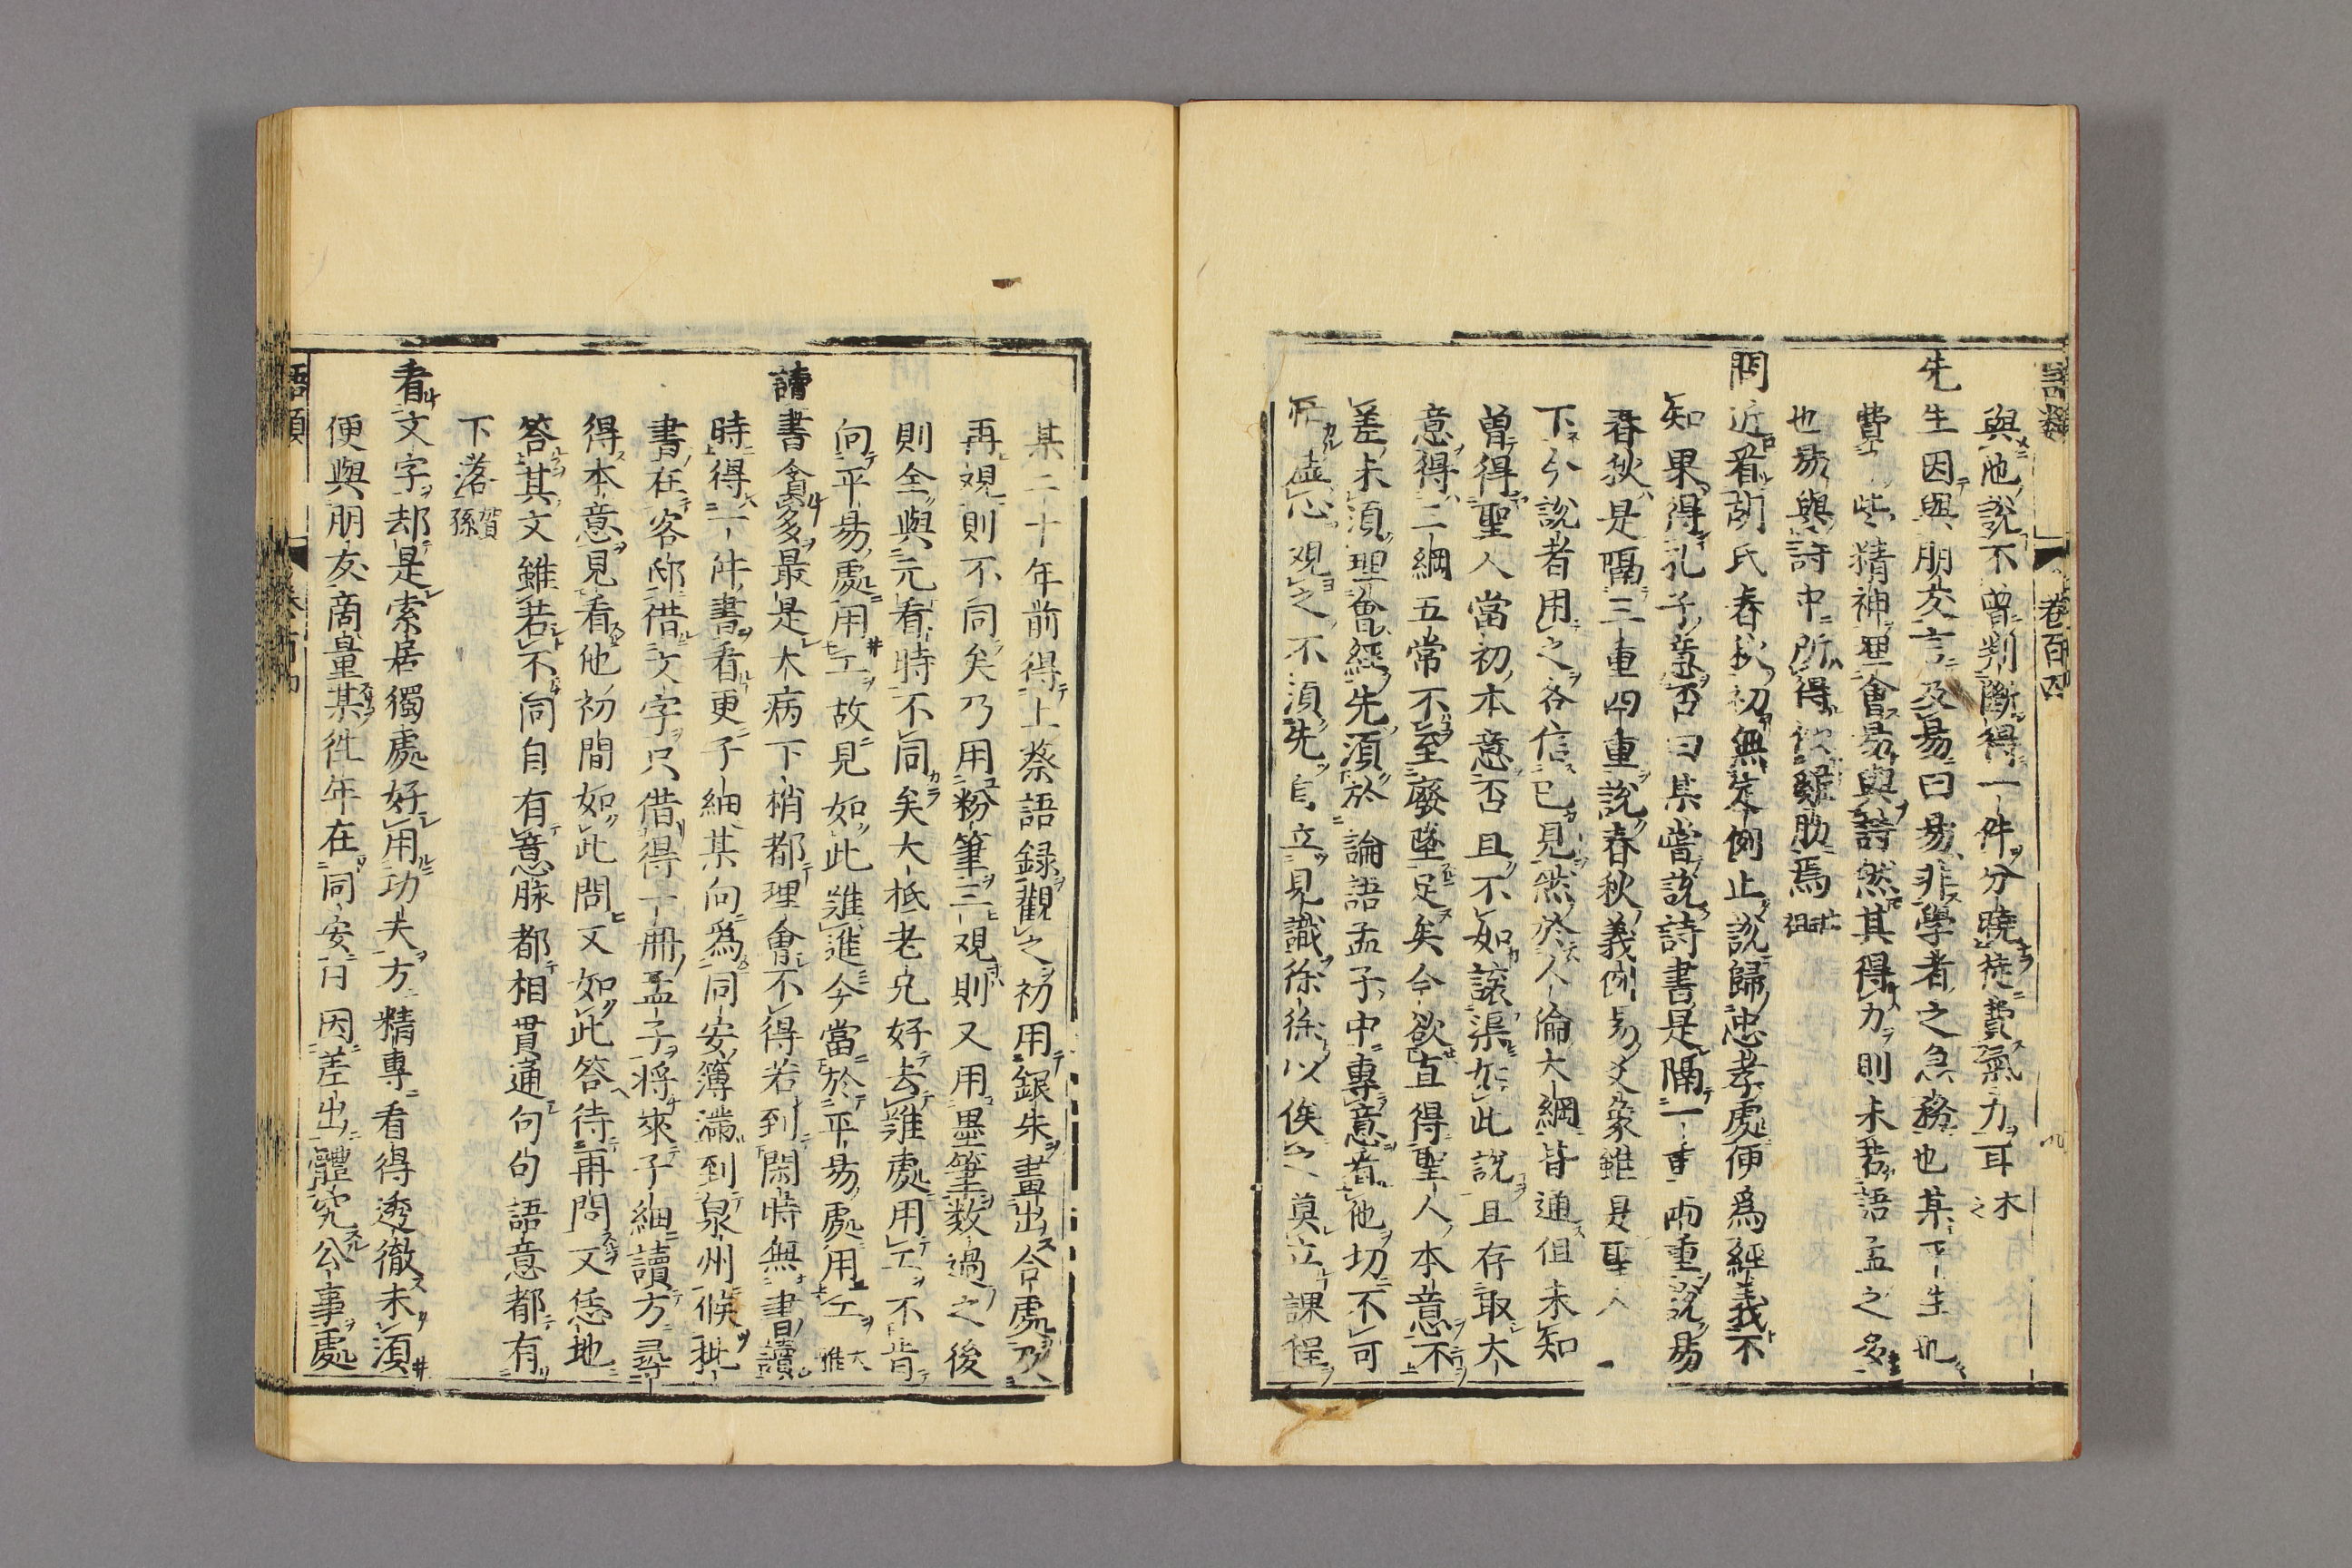 語類 卷百四 九
與他說不曾判斷得一件分曉徒費氣力耳木之
先生因與朋友言及易曰易非學者之急務也某平生也
費些精神理會易與詩然其得力則未若語孟之多
也易與詩中所得似雞肋焉壯祖
問近看胡氏春秋初無定例止說歸忠孝處便爲經義不
知果得孔子意否曰某嘗說詩書是隔一重兩重說易
春秋是隔三重四重說春秋義例易爻象雖是聖人
下今說者用之各信已見然於人倫大綱皆通但未知
曽得聖人當初本意否且不如讓渠如此說且存取大
意得三綱五常不至廢墜足矣今欲直得聖人本意不
差未須理會經先須於論語孟子中專意看他切不可
虛心观之不須先自立見識徐徐以俟之莫立課程
某二十年前得上蔡語録觀之初用銀朱畫出合處乃
再观則不同矣乃用粉筆三观則又用墨筆数過之後
則全與元看時不同矣大抵老兄好去難處用工不肯
向平易處用工故見如此難進今當於平易處用工大雅
讀書貪多最是大病下梢都理會不得若到閑時無書讀
時得一件書看更子細某向爲同安簿滿到泉州候批
書在客邸借文字只借得一册孟子將來子細讀方尋
得本意見看他初間如此問又如此答待再問又恁地
答其文雖若不同自有意脉都相貫通句句語意都有
下落賀孫
看文字却是索居獨處好用功夫方精專看得透徹未須
便與朋友商量某徃年在同安日因差出體究公事處
語類